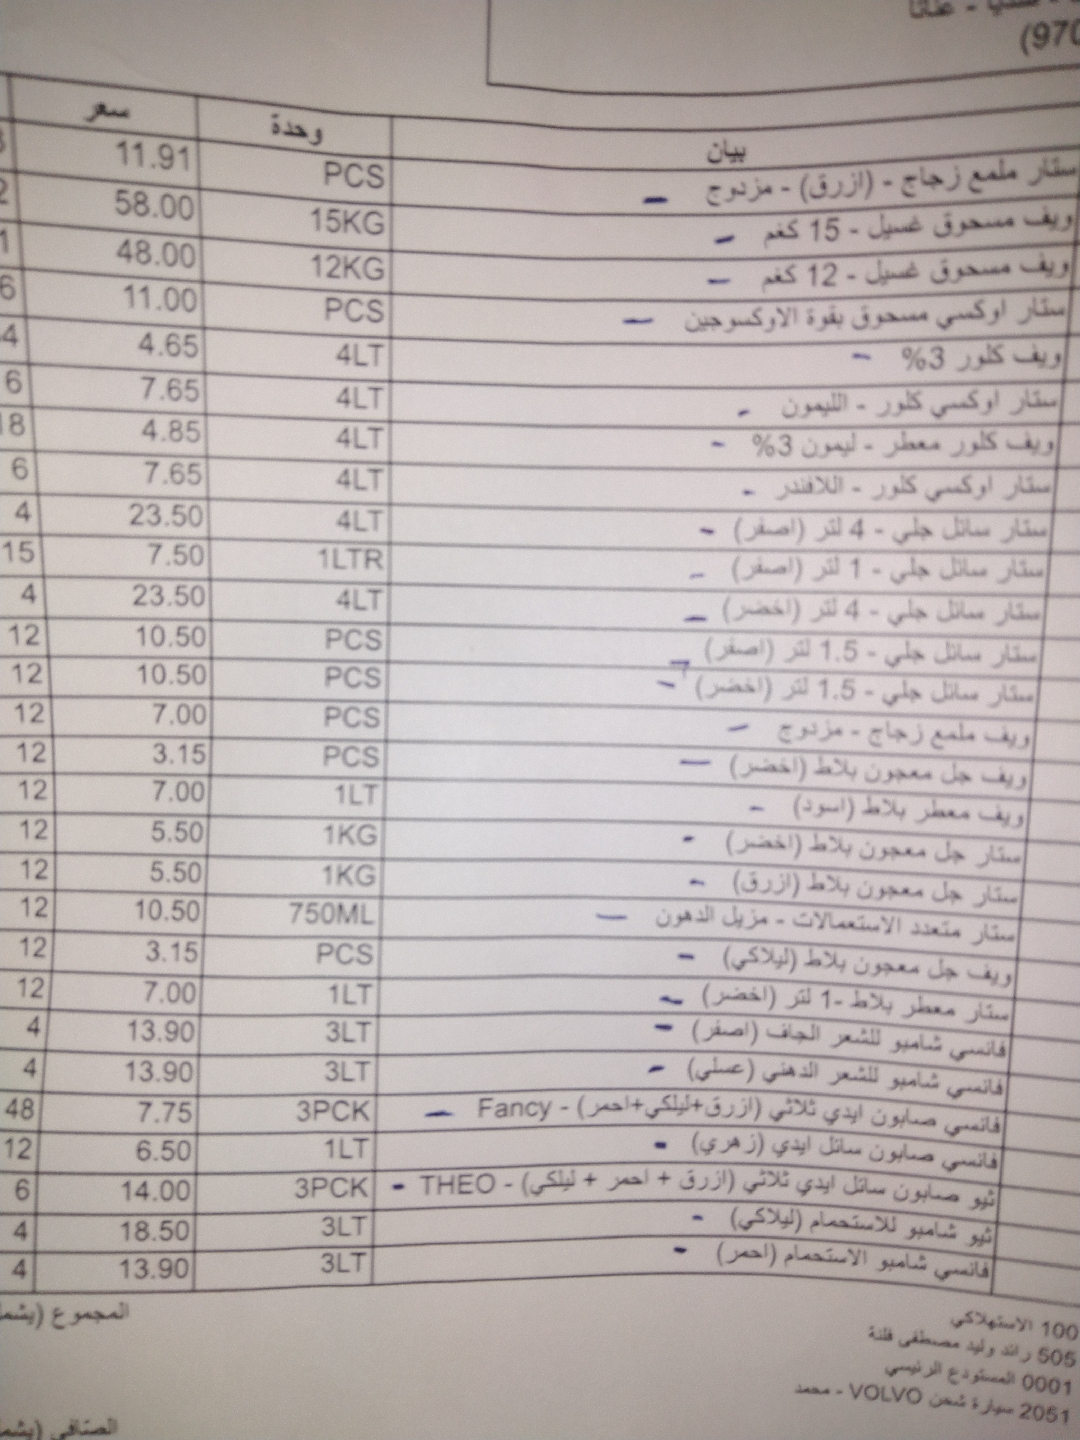 (970
بيان وحدة سعر
ستار ملمع زجاج - (ازرق) - مزدوج PCS 11.91
ويف مسحوق غسيل - 15 كغم 15KG 58.00
ويف مسحوق غسيل - 12 كغم 12KG 48.00
ستار اوكسي مسحوق بقوة الاوكسوجين PCS 11.00
ويف كلور 3% 4LT 4.65
ستار اوكسي كلور - الليمون 4LT 7.65 6
ويف كلور معطر - ليمون 3% 4LT 4.85 18
ستار اوكسي كلور - اللافندر 4LT 7.65 6
ستار سائل جلي - 4 لتر (اصفر) 4LT 23.50 4
ستار سائل جلي - 1 لتر (اصفر) 1LTR 7.50 15
ستار سائل جلي - 4 لتر (اخضر) 4LT 23.50 4
ستار سائل جلي - 1.5 لتر (اصفر) PCS 10.50 12
ستار سائل جلي - 1.5 لتر (اخضر) PCS 10.50 12
ويف ملمع زجاج - مزدوج PCS 7.00 12
ويف جل معجون بلاط (اخضر) PCS 3.15 12
ويف معطر بلاط (اسود) 1LT 7.00 12
ستار جل معجون بلاط (اخضر) 1KG 5.50 12
ستار جل معجون بلاط (ازرق) 1KG 5.50 12
ستار متعدد الاستعمالات - مزيل الدهون 750ML 10.50 12
ويف جل معجون بلاط (ليلاكي) PCS 3.15 12
ستار معطر بلاط -1 لتر (اخضر) 1LT 7.00 12
فانسي شامبو للشعر الجاف (اصفر) 3LT 13.90 4
فانسي شامبو للشعر الدهني (عسلي) 3LT 13.90 4
فانسي صابون ايدي ثلاثي (ازرق+ليلكي+احمر) - Fancy 3PCK 7.75 48
فانسي صابون سائل ايدي (زهري) 1LT 6.50 12
ثيو صابون سائل ايدي ثلاثي (ازرق + احمر + ليلكي) - THEO 3PCK 14.00 6
ثيو شامبو للاستحمام (ليلاكي) 3LT 18.50 4
فانسي شامبو الاستحمام (احمر) 3LT 13.90 4
المجموع (يشمل
100 الاستهلاكي
505 رائد وليد مصطفى فلنة
0001 المستودع الرئيسي
2051 سيارة شحن VOLVO - محمد
الصافي (يشمل